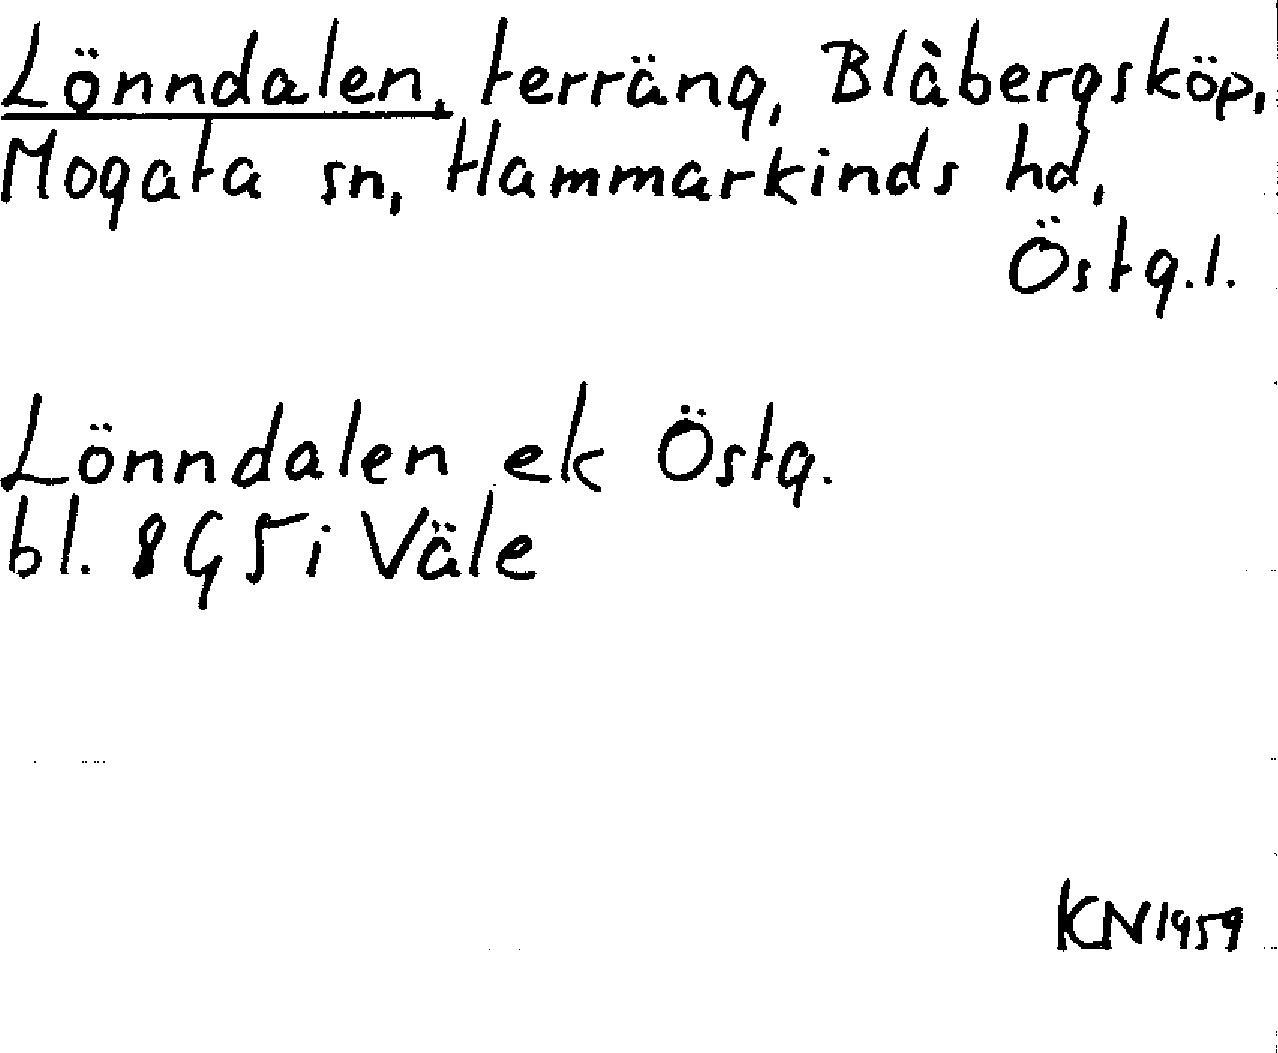 Lönndalen, terräng, Blåbergsköp,
Mogata sn, Hammarkinds hd,
Östg.l.
Lönndalen ek Östg.
bl. 8G5i Väle
KN1959